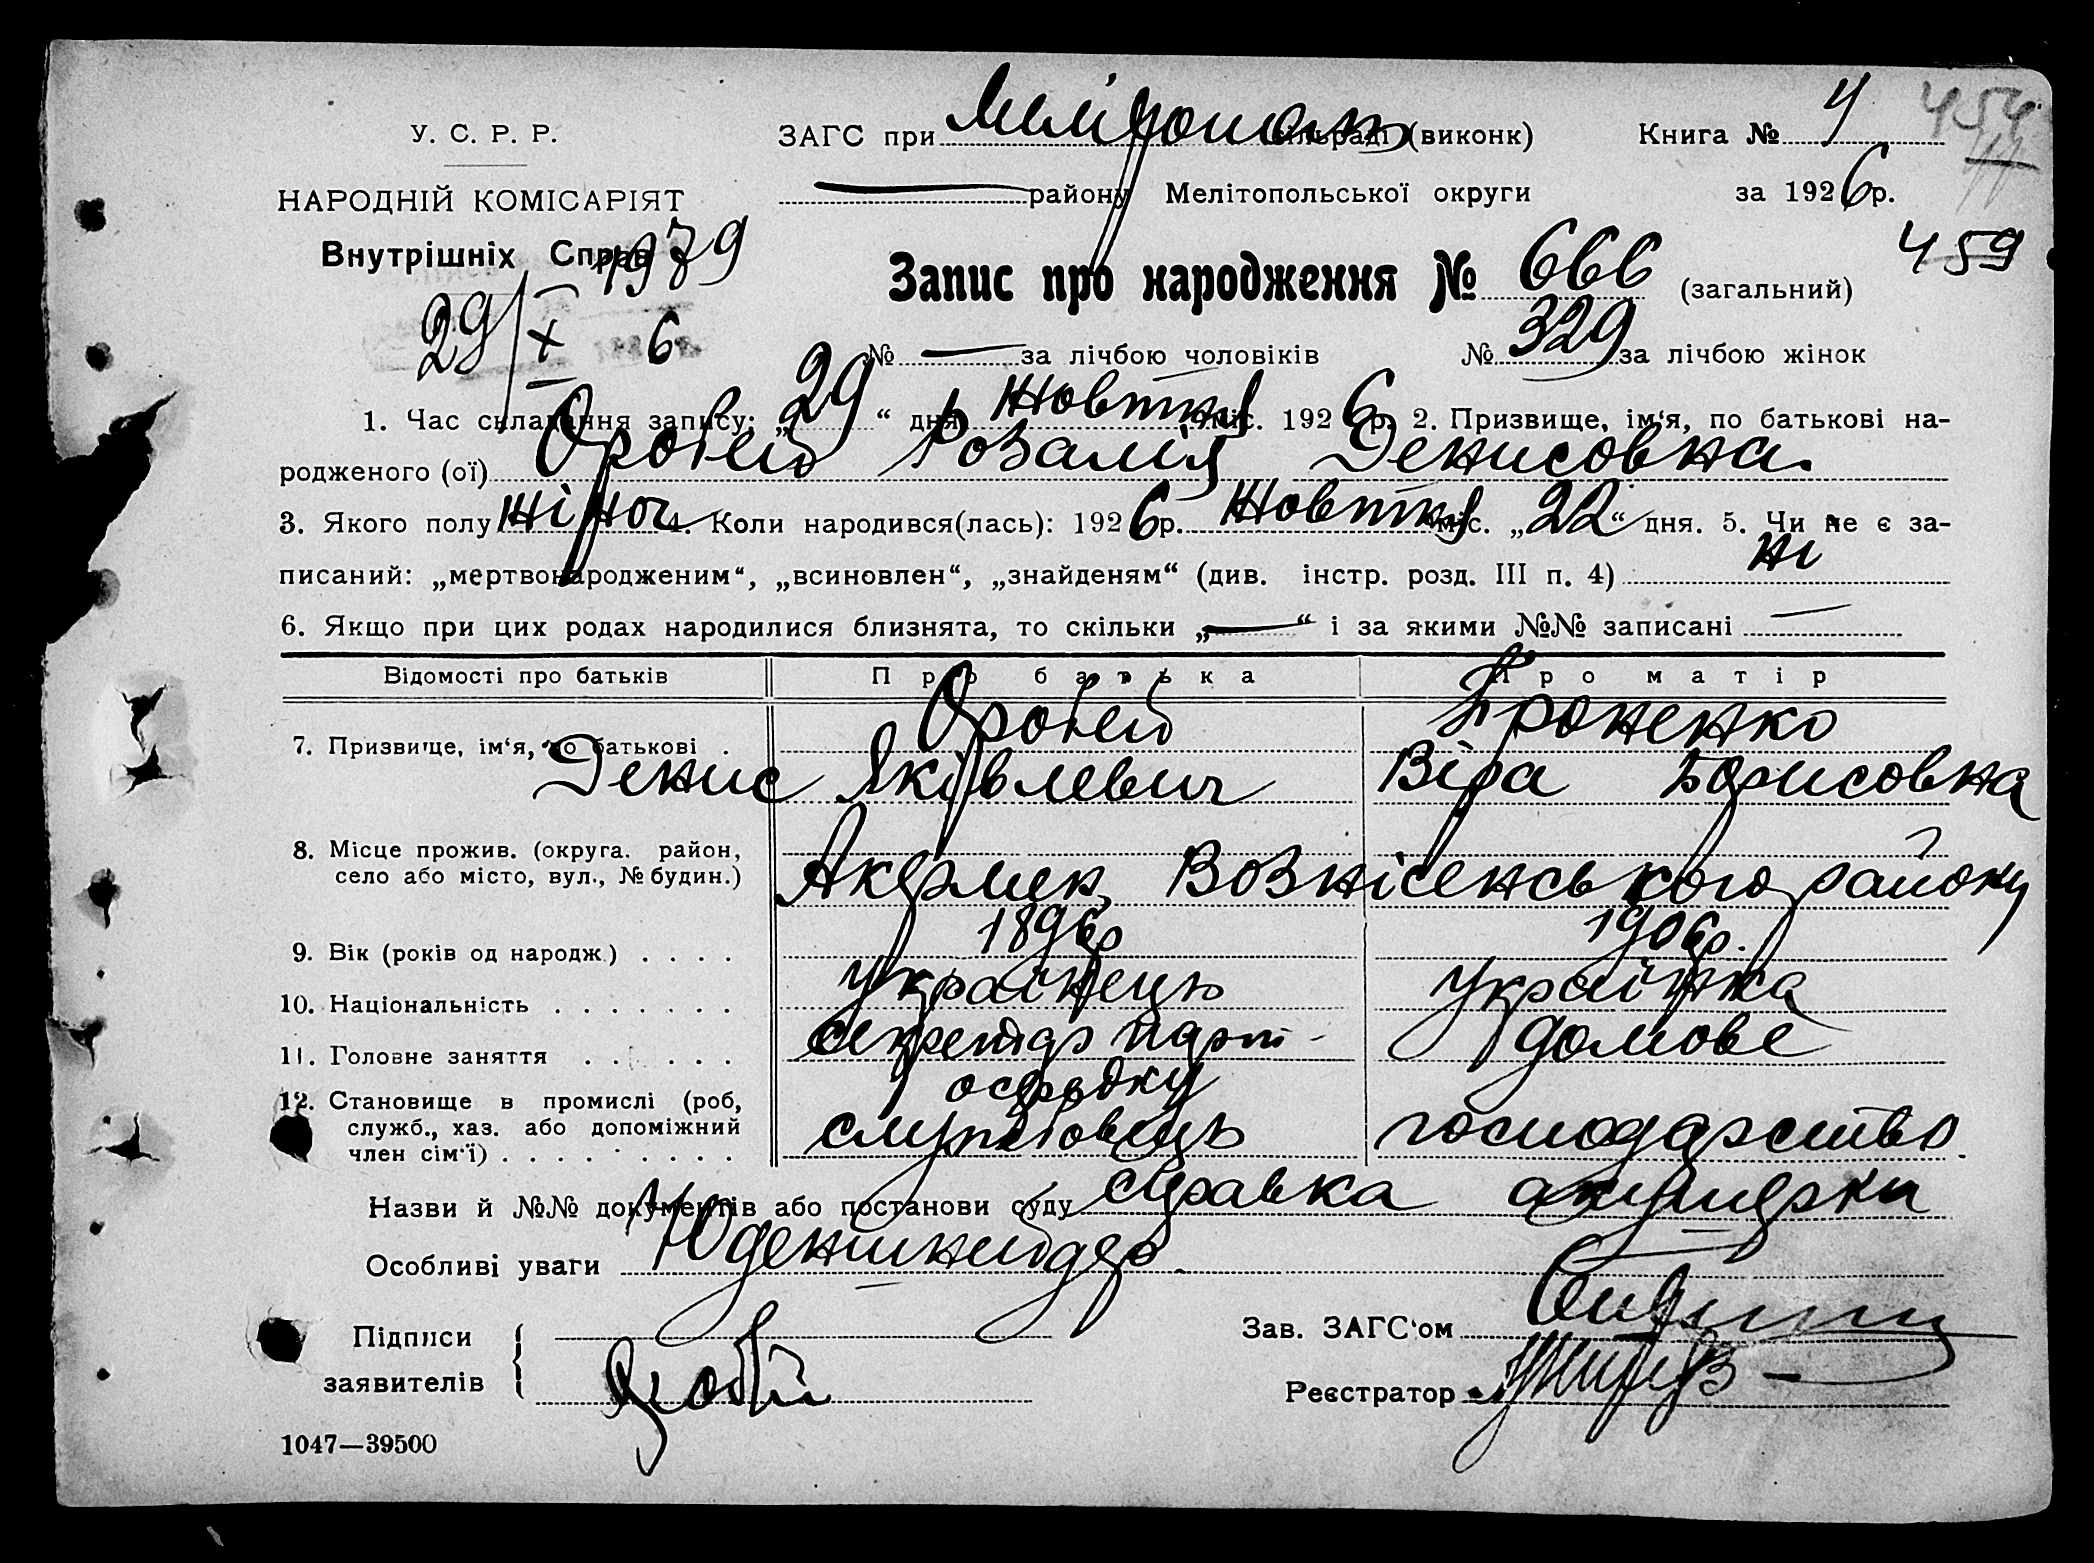 У. С. Р. Р.
ЗАГС при Мелітополь сільраді (виконк)
Книга № 4
454
НАРОДНІЙ КОМІСАРІЯТ
району Мелітопольської округи
за 1926 р.
Внутрішніх Справ
1979
459
Запис про народження № 666 (загальний)
29/X 6
№ — за лічбою чоловіків № 329 за лічбою жінок
1. Час складання запису: „29“ дня Жовтня міс. 1926 р. 2. Призвище, ім‘я, по батькові на-
родженого (ої) Розалія Денисовна
3. Якого полу жіноч 4. Коли народився(лась): 1926 р. Жовтня міс. „22“ дня. 5. Чи не є за-
писаний: „мертвонародженим“, „всиновлен“, „знайденям“ (див. інстр. розд. III п. 4) ні
6. Якщо при цих родах народилися близнята, то скільки „—“ і за якими №№ записані —
Відомості про батьків Про батька Про матір
7. Призвище, ім‘я, по батькові .
Денис Яківлевич Віра Борисовна
8. Місце прожив. (округа. район,
село або місто, вул., № будин.)
Вознісенського району
9. Вік (років од народж.) . . . . 1896р 1906р.
10. Національність . . . . . . . українець українка
11. Головне заняття . . . . . . секретар парт- домове
осередку
12. Становище в промислі (роб,
служб., хаз. або допоміжний
член сім‘ї) . . . . . . . . .
службовець господарство
Назви й №№ документів або постанови суду справка акушерки
Особливі уваги
Підписи
заявителів
Зав. ЗАГС‘ом
Реєстратор
1047—39500